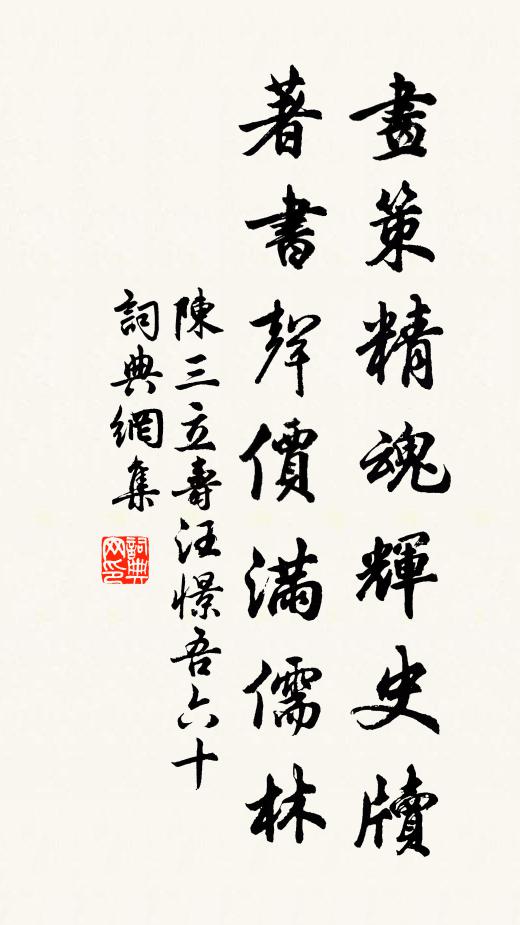 畫策精魂輝史牘
著書聲價滿儒林
陳三立壽汪憬吾六十
詞典網集
詞典网印